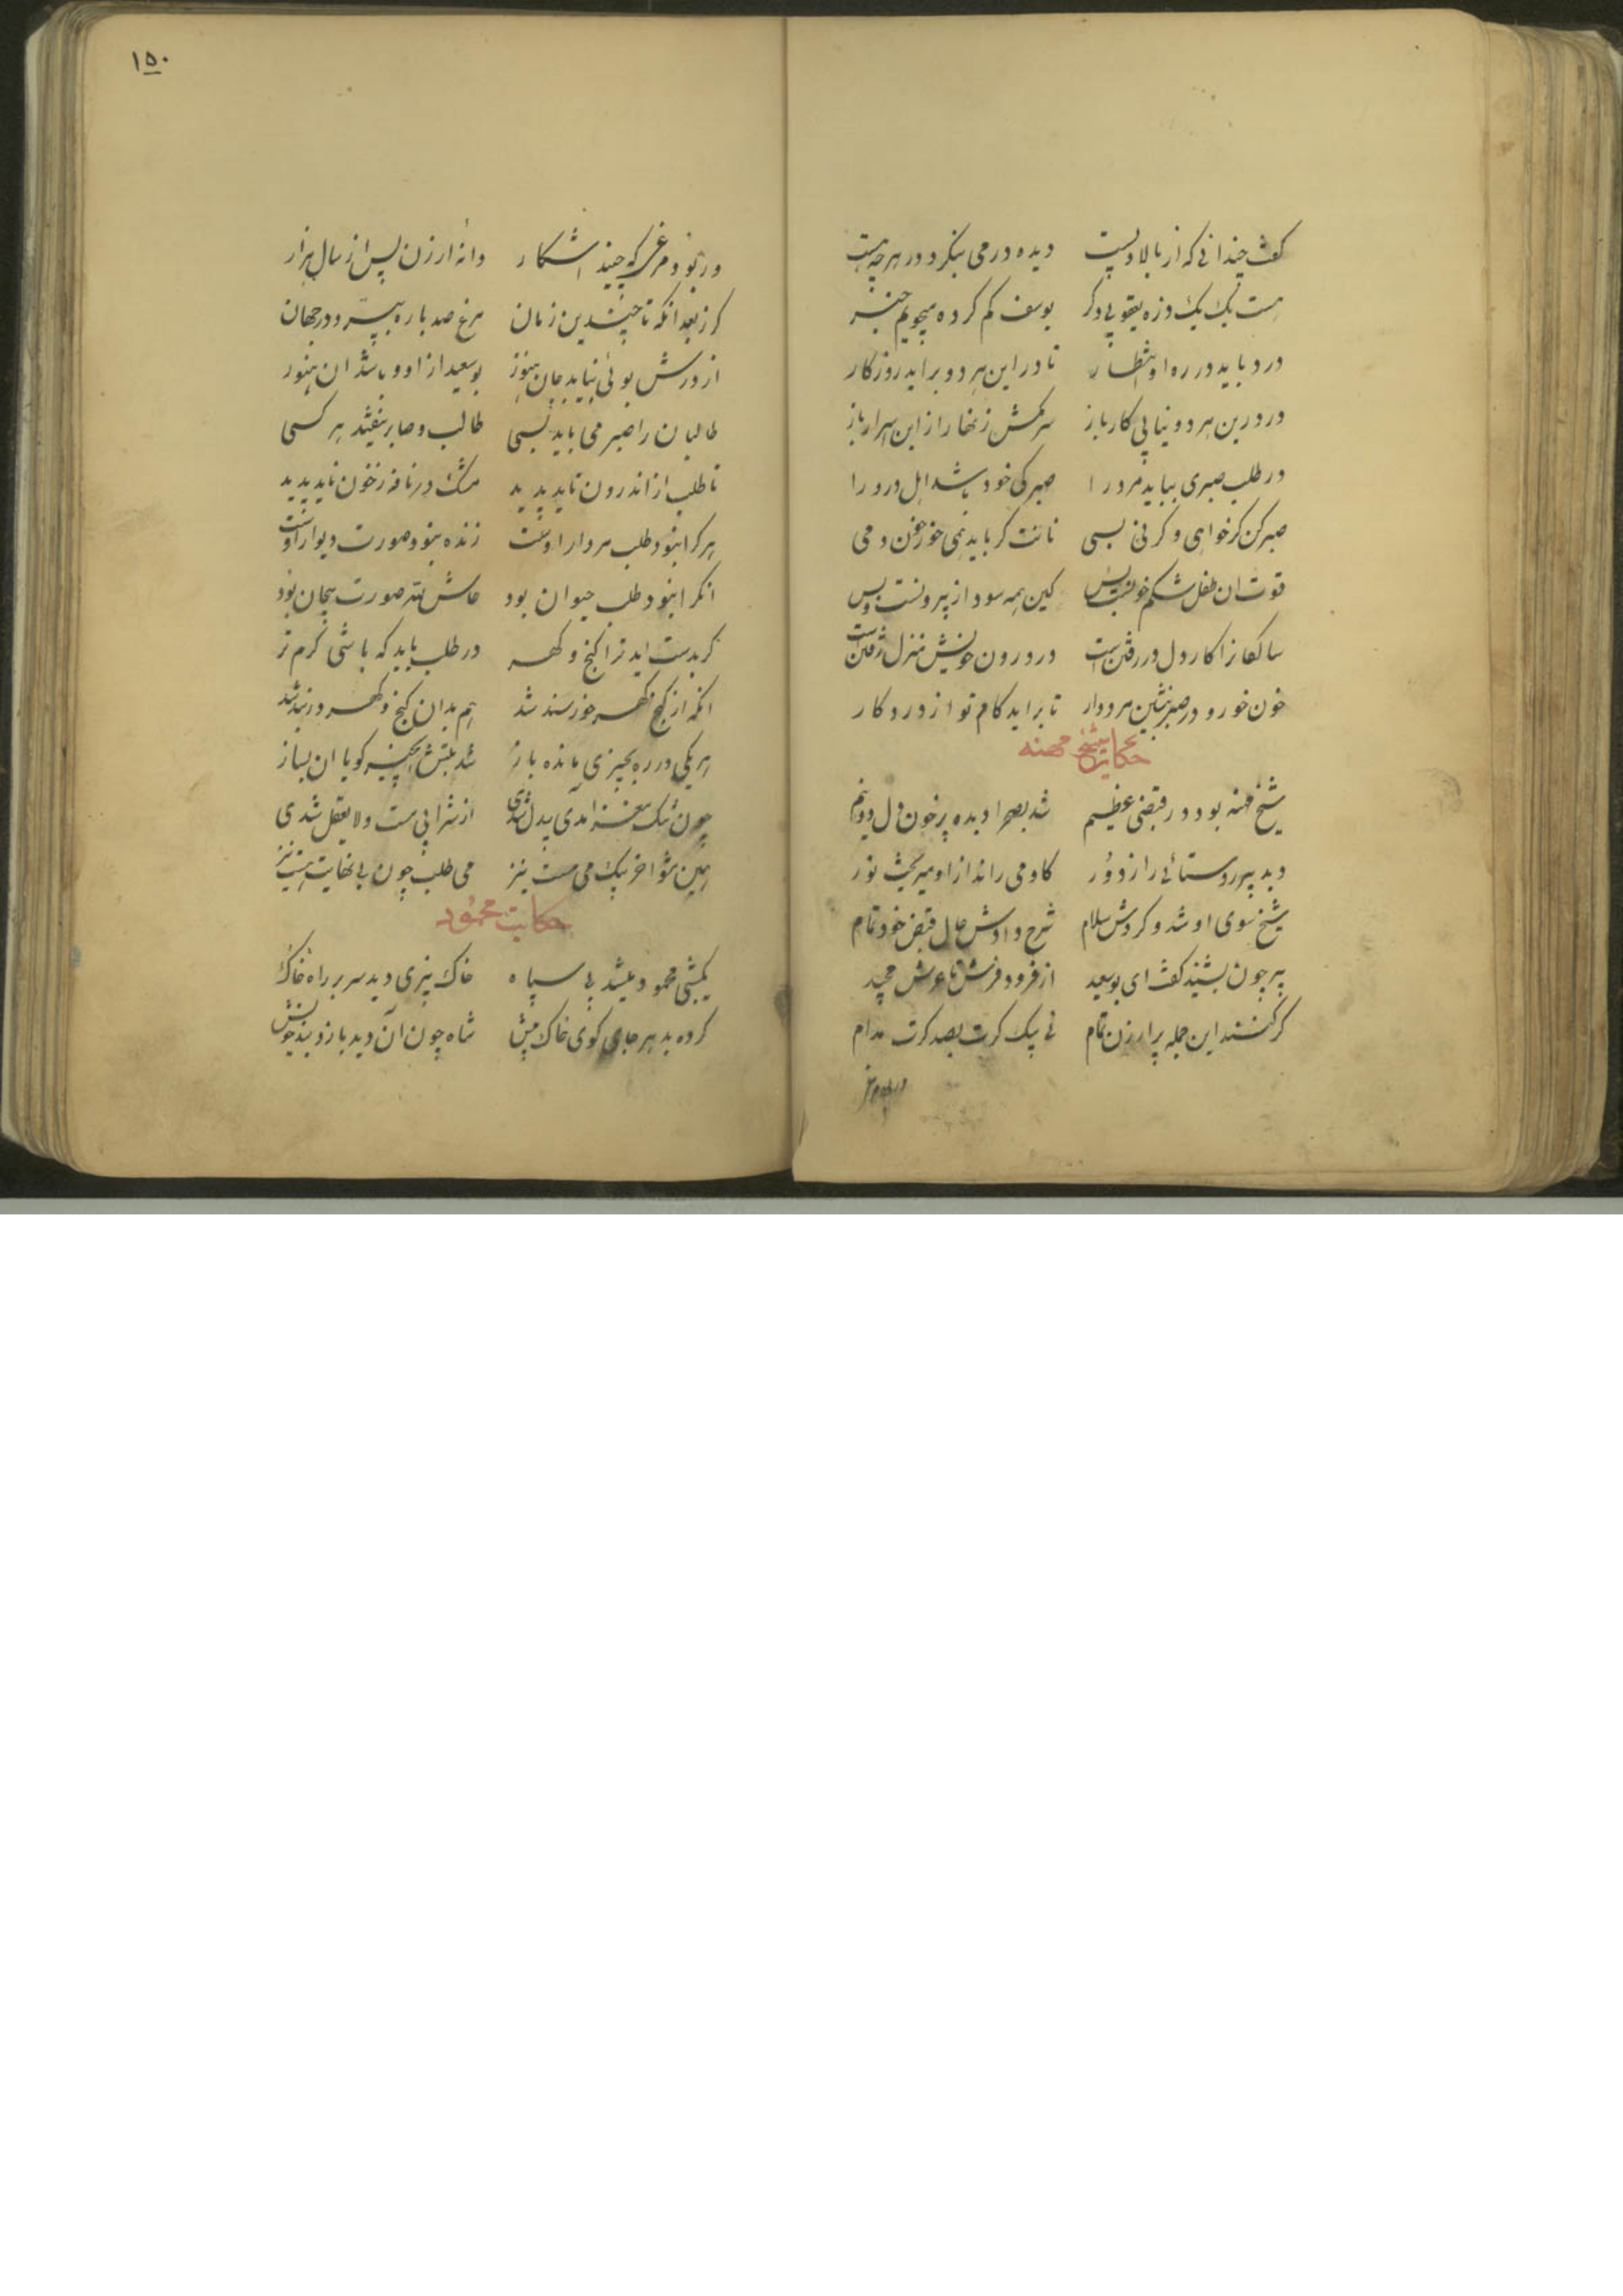 ۱۵۰
گفت چندانی که از بالا و پست دیده ور می بنگرد در هرچه هست
هست یک یک ذره یعقوبی دگر یوسف گم کرده میجوید خبر
درد باید در ره او انتظار تا در این هر دو براید روزگار
ور درین هر دو نیابی کار باز سر مکش زنهار از این اسرار باز
در طلب صبری بباید مرد را صبر کی خود باشد اهل درد را
صبر کن گر خواهی و گر نی بسی
قوت ان طفل شکم خونست بس کین همه سودا ز بیرونست و بس
در درون خویش منزل رفتن است
خون خور و در صبر بنشین مردوار تا براید کام تو از درد کار
حکایت شیخ مهنه
شیخ مهنه بود در قبضی عظیم شد بصحرا دیده پرخون دل دو نیم
دید پیر روستائی را ز دور گاو می راند از او میریخت نور
شیخ سوی او شد و کردش سلام شرح دادش حال قبض خود تمام
پیر چون بشنید گفت ای بوسعید از فرود فرش تا عرش مجید
گر کنند این جمله پر ارزن تمام نی بیک کرت بصد کرت مدام
ور بود مرغی
ور بود مرغی که چیند اشکار دانه ارزن پس از سال هزار
گر ز بعد انکه تا چندین زمان مرغ صد باره بپرد در جهان
از درش بوئی نیابد جان هنوز بوسعیدا زاو و باشد ان هنوز
طالبان را صبر می باید بسی طالب و صابر نیفتد هر کسی
تا طلب از اندرون ناید پدید مشک در نافه ز خون ناید پدید
هر کرا نبود طلب مردار اوست زنده نبود صورت دیوار اوست
انکرا نبود طلب حیوان بود حاش لله صورت بیجان بود
گر بدست اید ترا گنج و گهر در طلب باید که باشی گرم تر
انکه از گنج گهر خورسند شد هم بدان گنج و گهر در بند شد
هر یکی در ره بچیزی مانده باز شد بتش ان چیز گو با ان بساز
چون تنک مغز امدی بیدل شدی از شرابی مست و لایعقل شدی
همین مشو اخر بیک می مست نیز می طلب چون بی نهایت هست نیز
حکایت محمود
یکشبی محمود میشد بی سپاه خاک بیزی دید سر بر راه خاک
کرده بد هر جای کوی خاک پیش شاه چون آن دید بازوبند خویش